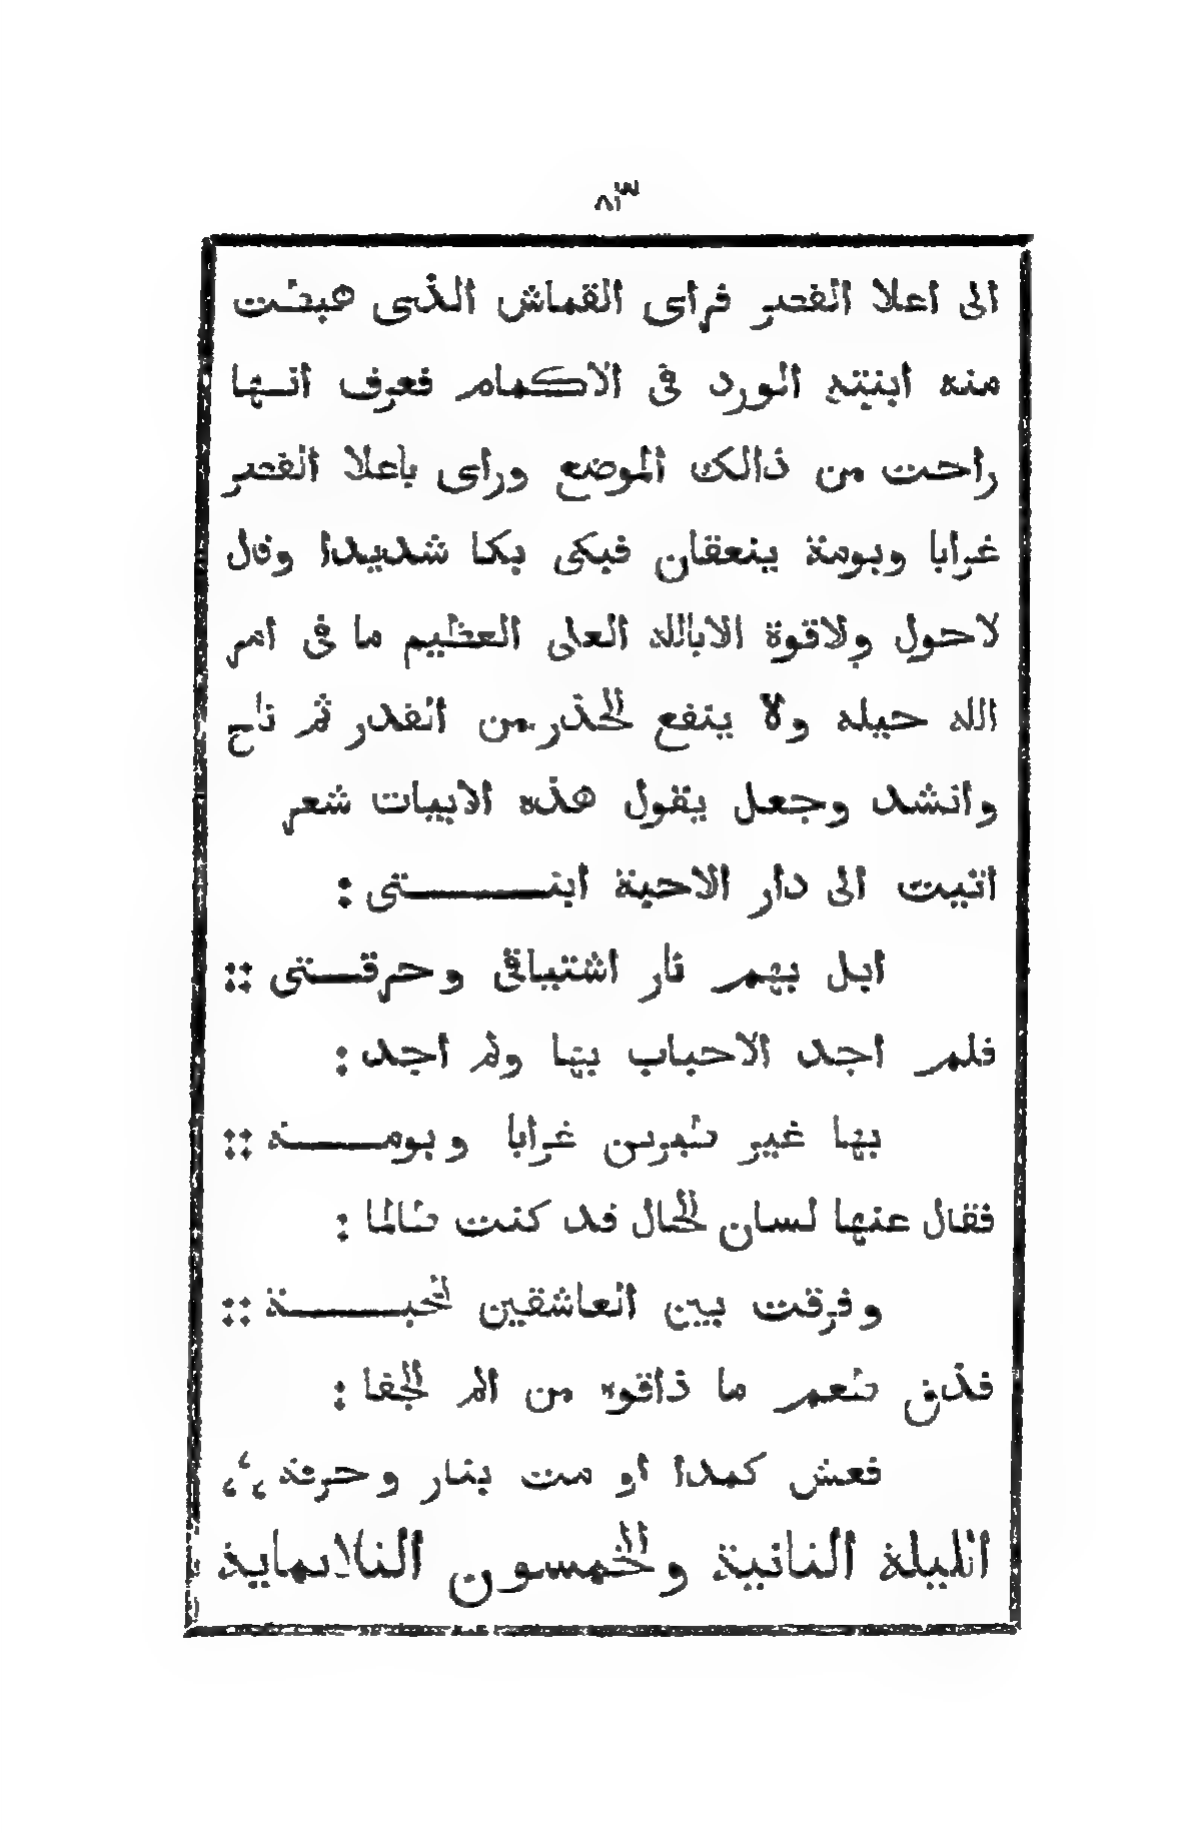 ٨٣
الى اعلا القصر فراى القماش الذى هبطت
منه ابنته الورد فى الاكمام فعرف انها
راحت من ذالك الموضع وراى باعلا القصر
غرابا وبومة ينعقان فبكى بكا شديدا وقال
لاحول ولاقوة الابالله العلى العظيم ما فى امر
الله حيله ولا ينفع الحذر من القدر ثم ناح
وانشد وجعل يقول هذه الابيات شعر
اتيت الى دار الاحبة ابتـــــتى :
ابل بهم نار اشتياقى وحرقـــتى ::
فلم اجد الاحباب بها ولم اجد :
بها غير طيرين غرابا وبومـــة ::
فقال عنها لسان الحال قد كنت ظالما :
وفرقت بين العاشقين نحبـــــة ::
فذق طعم ما ذاقوه من الم الجفا :
فعش كمدا او مت بنار وحرقة
الليلة الثانية والخمسون الثلاثماية